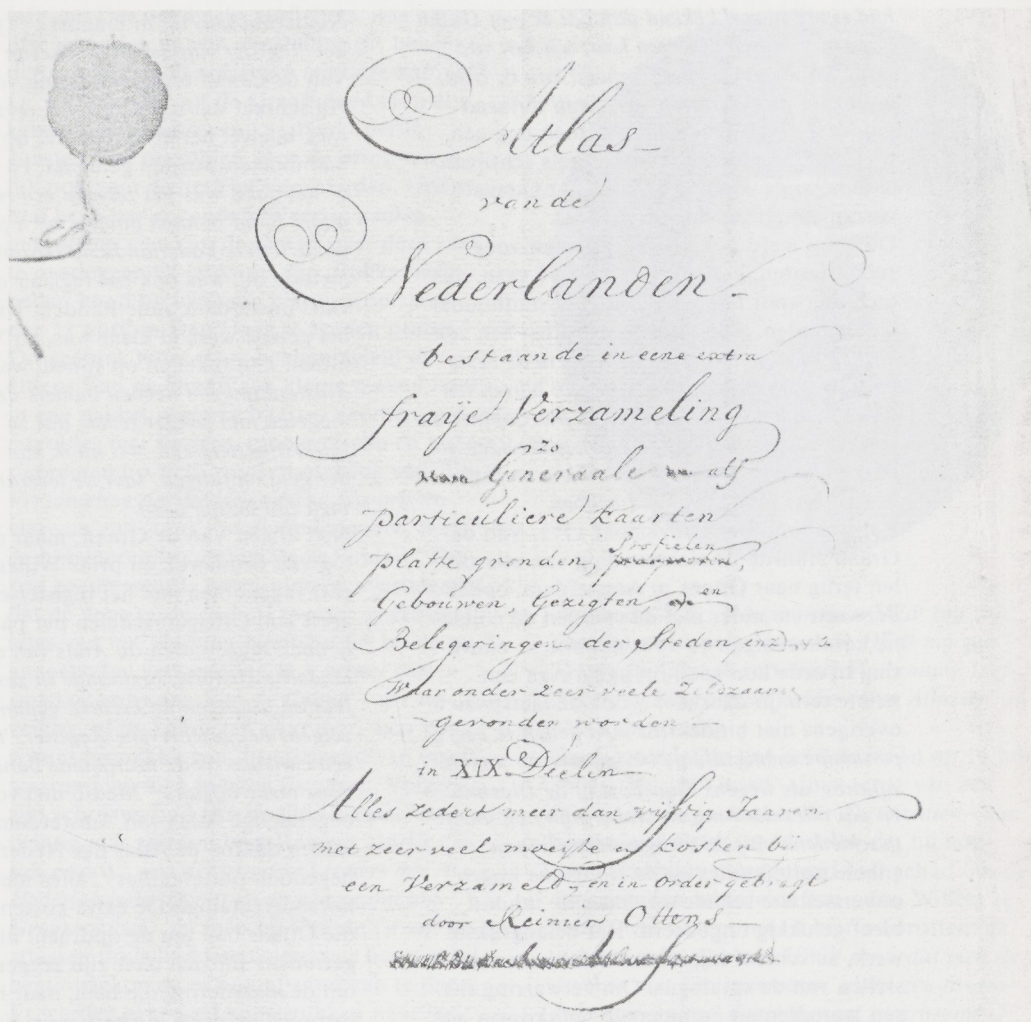 Atlas
van de
Nederlanden
bestaande in eene extra
fraije Verzameling
zo
Generaale als
particuliere Kaarten
Profielen
platte gronden,
Gebouwen, Gezigten, en
Belegeringen der Steden, enz.
Waar onder zeer veele Zeltzaame
gevonden worden
in XIX Deelen
Alles zedert meer dan vijftig Jaaren
met zeer veel moeijte en kosten by
een Verzameld, en in order gebragt
door Reinier Ottens